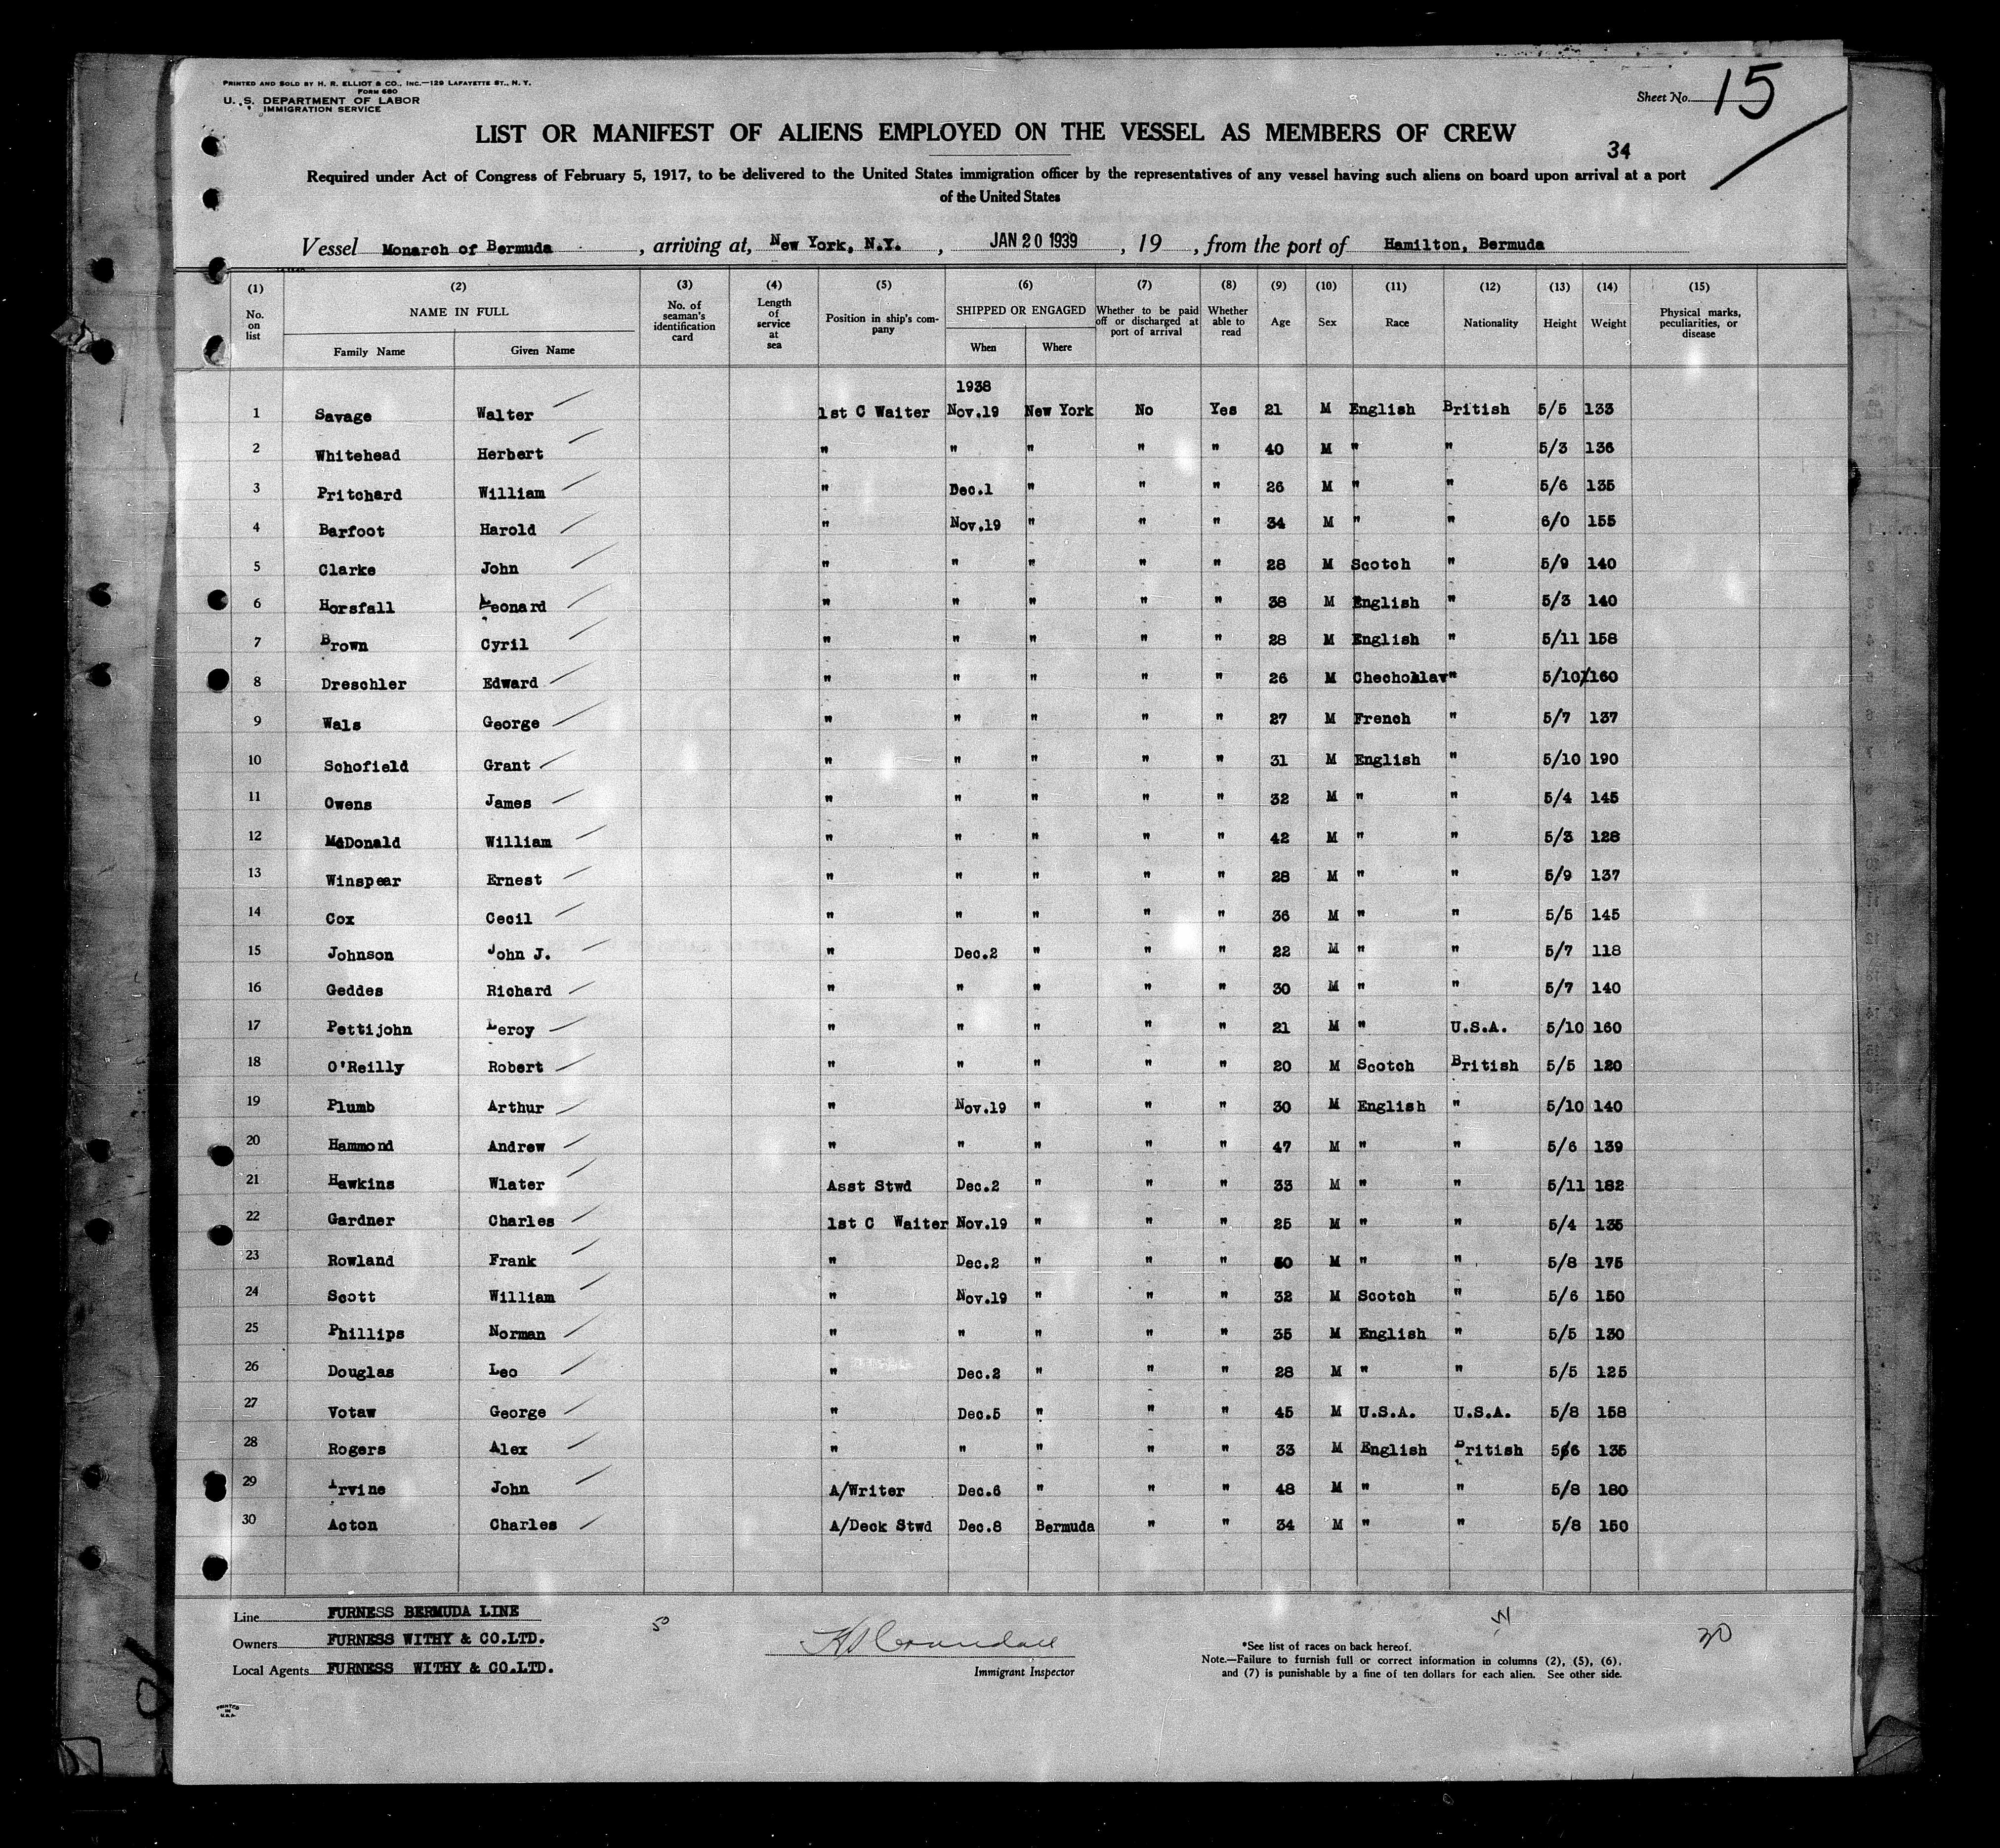 PRINTED AND SOLD BY H. R. ELLIOT & CO., INC.—129 LAFAYETTE ST., N. Y.
FORM 680
U. S. DEPARTMENT OF LABOR
IMMIGRATION SERVICE
Sheet No. 15
LIST OR MANIFEST OF ALIENS EMPLOYED ON THE VESSEL AS MEMBERS OF CREW
34
Required under Act of Congress of February 5, 1917, to be delivered to the United States immigration officer by the representatives of any vessel having such aliens on board upon arrival at a port
of the United States
Vessel Monarch of Bermuda , arriving at, New York, N.Y. , JAN 20 1939 , 19 , from the port of Hamilton, Bermuda
(1) (2) (3) (4) (5) (6) (7) (8) (9) (10) (11) (12) (13) (14) (15)
No. on list NAME IN FULL Family Name Given Name No. of seaman's identification card Length of service at sea Position in ship's company SHIPPED OR ENGAGED When Where Whether to be paid off or discharged at port of arrival Whether able to read Age Sex Race Nationality Height Weight Physical marks, peculiarities, or disease
1938
1 Savage Walter 1st C Waiter Nov.19 New York No Yes 21 M English British 5/5 133
2 Whitehead Herbert " " " " " 40 M " " 5/3 136
3 Pritchard William " Dec.1 " " " 26 M " " 5/6 135
4 Barfoot Harold " Nov.19 " " " 34 M " " 6/0 155
5 Clarke John " " " " " 28 M Scotch " 5/9 140
6 Horsfall Leonard " " " " " 38 M English " 5/3 140
7 Brown Cyril " " " " " 28 M English " 5/11 158
8 Dreschler Edward " " " " " 26 M Chechoslav " 5/10 160
9 Wals George " " " " " 27 M French " 5/7 137
10 Schofield Grant " " " " " 31 M English " 5/10 190
11 Owens James " " " " " 32 M " " 5/4 145
12 McDonald William " " " " " 42 M " " 5/3 128
13 Winspear Ernest " " " " " 28 M " " 5/9 137
14 Cox Cecil " " " " " 36 M " " 5/5 145
15 Johnson John J. " Dec.2 " " " 22 M " " 5/7 118
16 Geddes Richard " " " " " 30 M " " 5/7 140
17 Pettijohn Leroy " " " " " 21 M " U.S.A. 5/10 160
18 O'Reilly Robert " " " " " 20 M Scotch British 5/5 120
19 Plumb Arthur " Nov.19 " " " 30 M English " 5/10 140
20 Hammond Andrew " " " " " 47 M " " 5/6 139
21 Hawkins Wlater Asst Stwd Dec.2 " " " 33 M " " 5/11 182
22 Gardner Charles 1st C Waiter Nov.19 " " " 25 M " " 5/4 135
23 Rowland Frank " Dec.2 " " " 50 M " " 5/8 175
24 Scott William " Nov.19 " " " 32 M Scotch " 5/6 150
25 Phillips Norman " " " " " 35 M English " 5/5 130
26 Douglas Leo " Dec.2 " " " 28 M " " 5/5 125
27 Votaw George " Dec.5 " " " 45 M U.S.A. U.S.A. 5/8 158
28 Rogers Alex " " " " " 33 M English British 5/6 135
29 Irvine John A/Writer Dec.6 " " " 48 M " " 5/8 180
30 Acton Charles A/Deck Stwd Dec.8 Bermuda " " 34 M " " 5/8 150
Line FURNESS BERMUDA LINE
Owners FURNESS WITHY & CO.LTD.
Local Agents FURNESS WITHY & CO.LTD.
50
Immigrant Inspector
*See list of races on back hereof.
Note.—Failure to furnish full or correct information in columns (2), (5), (6), and (7) is punishable by a fine of ten dollars for each alien. See other side.
30
PRINTED IN U.S.A.